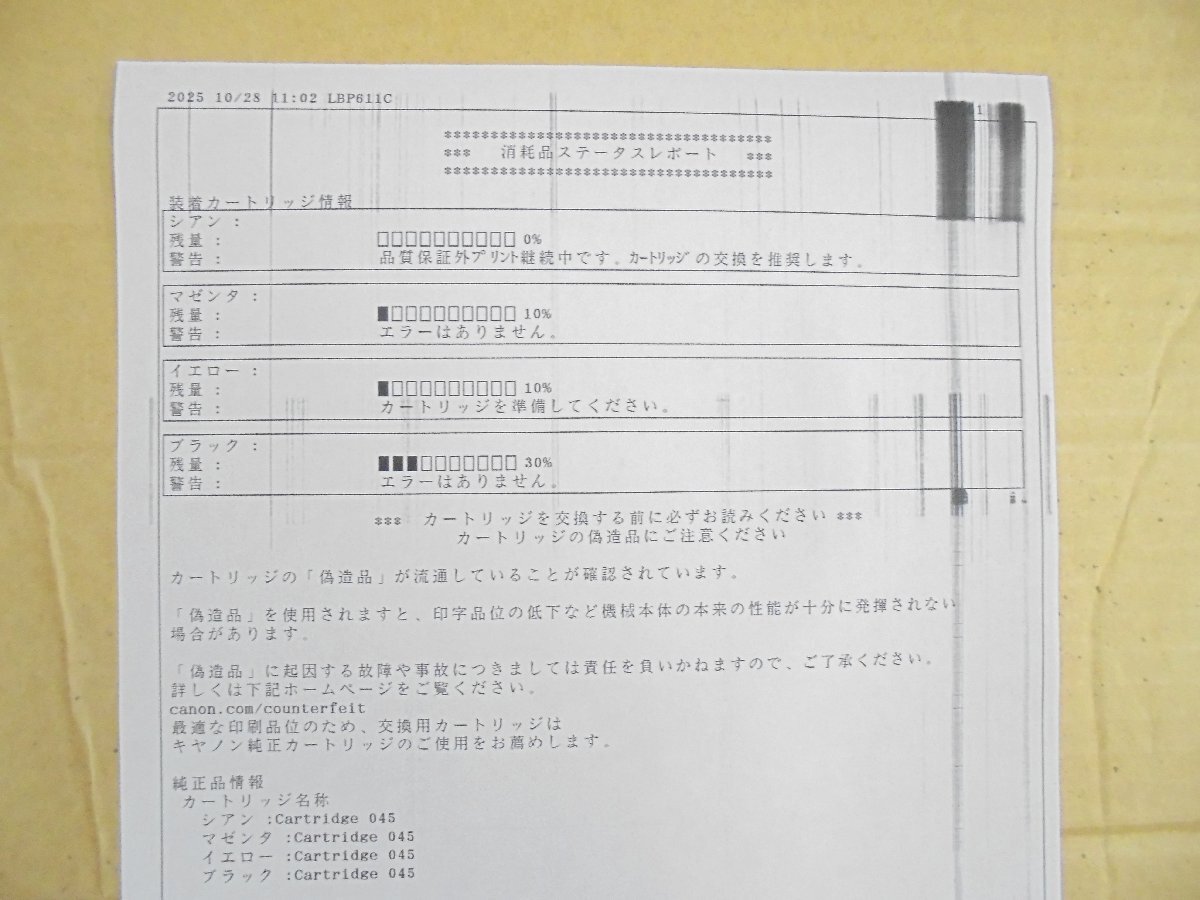 2025 10/28 11:02 LBP611C
1
***********************************
*** 消耗品ステータスレポート ***
***********************************
装着カートリッジ情報
シアン :
残量 : □□□□□□□□□□ 0%
警告 : 品質保証外プリント継続中です。カートリッジの交換を推奨します。
マゼンタ :
残量 : ■□□□□□□□□□ 10%
警告 : エラーはありません。
イエロー :
残量 : ■□□□□□□□□□ 10%
警告 : カートリッジを準備してください。
ブラック :
残量 : ■■■□□□□□□□ 30%
警告 : エラーはありません。
*** カートリッジを交換する前に必ずお読みください ***
カートリッジの偽造品にご注意ください
カートリッジの「偽造品」が流通していることが確認されています。
「偽造品」を使用されますと、印字品位の低下など機械本体の本来の性能が十分に発揮されない
場合があります。
「偽造品」に起因する故障や事故につきましては責任を負いかねますので、ご了承ください。
詳しくは下記ホームページをご覧ください。
canon.com/counterfeit
最適な印刷品位のため、交換用カートリッジは
キヤノン純正カートリッジのご使用をお薦めします。
純正品情報
カートリッジ名称
シアン :Cartridge 045
マゼンタ :Cartridge 045
イエロー :Cartridge 045
ブラック :Cartridge 045